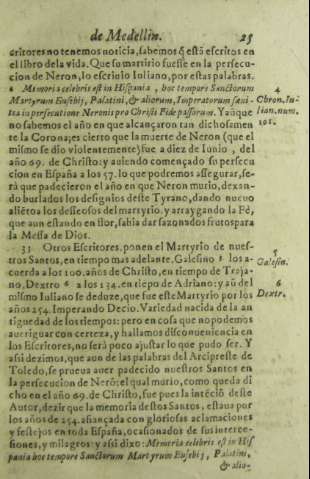 de Medellin. 25
critores no tenemos noticia, sabemos q̃ està escritos en
el libro de la vida. Que su martirio fuesse en la persecu-
cion de Neron, lo escriuio Iuliano, por estas palabras.
4 Memoria celebris est in Hispania, hoc tempore Sanctorum
Martyrum Eusebij, Palatini, & aliorum, Imperatorum sæui-
tia in persecutione Neronis pro Christi Fide passorum. Y aũque
no sabemos el año en que alcançaron tan dichosamen
te la Corona; es cierto que la muerte de Neron (que el
mismo se dio violentemente) fue a diez de Iunio, del
año 69. de Christo: y auiendo començado su persecu
cion en España a los 57. lo que podremos assegurar, se-
rà que padecieron el año en que Neron murio, dexan-
do burlados los designios deste Tyrano, dando nueuo
aliẽto a los desseosos del martyrio, y arraygando la Fè,
que aun estando en flor, sabia dar sazonados frutos para
la Mesa de Dios.
33 Otros Escritores, ponen el Martyrio de nues-
tros Santos, en tiempo mas adelante. Galesino 5 los a-
cuerda a los 100. años de Christo, en tiempo de Traja-
no, Dextro 6 a los 134. en tiẽpo de Adriano: y aũ del
mismo Iuliano se deduze, que fue este Martyrio por los
años 254. Imperando Decio. Variedad nacida de la an
tiguedad de los tiempos: pero en cosa que no podemos
aueriguar con certeza, y hallamos disconueniencia en
los Escritores, no serà poco ajustar lo que pudo ser. Y
assi dezimos, que aun de las palabras del Arcipreste de
Toledo, se prueua auer padecido nuestros Santos en
la persecucion de Nerõ: el qual murio, como queda di
cho en el año 69. de Christo, fue pues la intẽciõ deste
Autor, dezir que la memoria destos Santos, estaua por
los años de 254. afiançada con gloriosas aclamaciones
y festejos en toda España, ocasionados de sus interce-
siones, y milagros: y assi dixo: Memoria celebris est in His
pania hoc tempore Sanctorum Martyrum Eusebij, Palatini,
& alio-
4
Chron. Iu-
lian. num.
101.
5
Galesin.
6
Dextr.